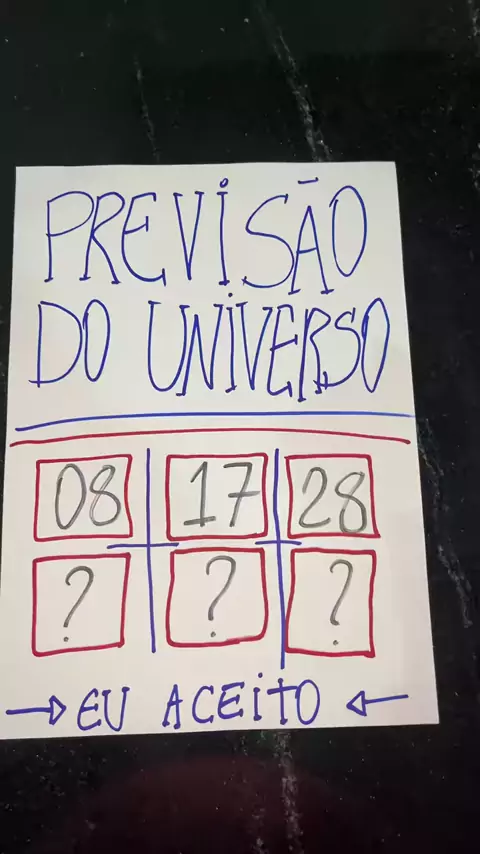 PREVISÃO
DO UNIVERSO
08 17 28
? ? ?
→ EU ACEITO ←